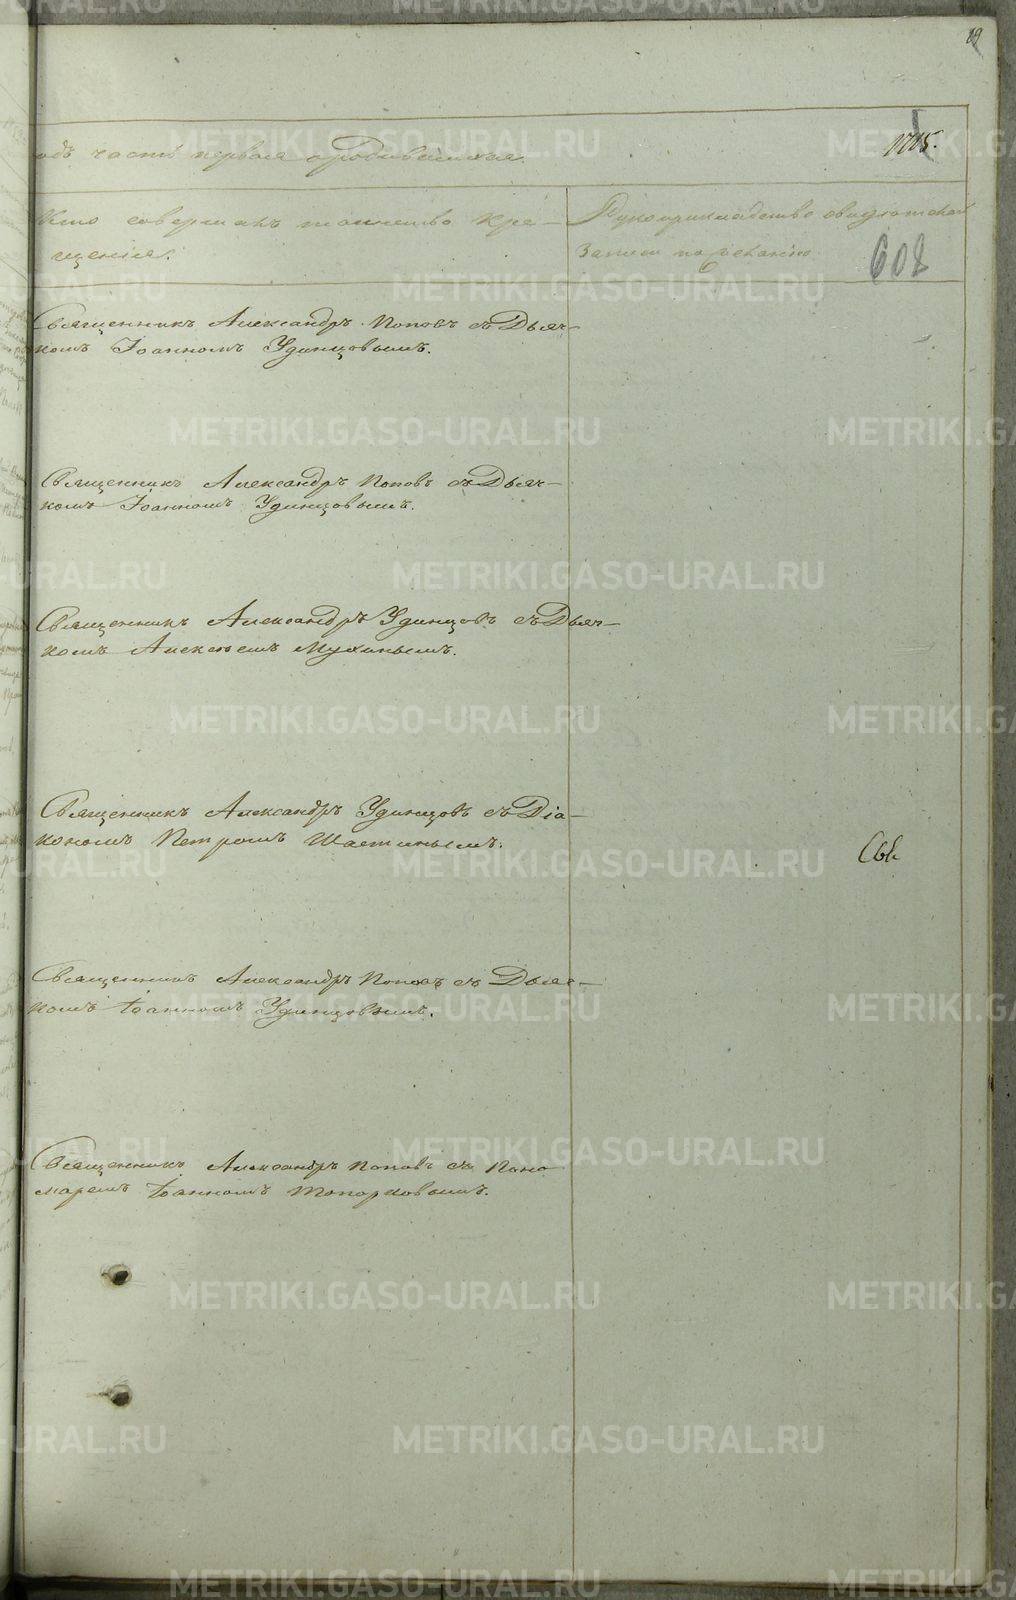 89
1715.
одъ часть первая о родившихся.
Кто совершалъ таинство кре-
щенія.
Рукоприкладство свидѣтелей
записи по желанію.
608
Священникъ Александръ Поповъ съ Дьяч-
комъ Іоанномъ Удинцовымъ.
Священникъ Александръ Поповъ съ Дьяч-
комъ Іоанномъ Удинцовымъ.
Священникъ Александръ Удинцовъ съ Дьяч-
комъ Алексѣемъ Мухинымъ.
Священникъ Александръ Удинцовъ съ Діа-
кономъ Петромъ Шастинымъ.
Священникъ Александръ Поповъ съ Дьяч-
комъ Іоанномъ Удинцовымъ.
Священникъ Александръ Поповъ съ Поно
маремъ Іоанномъ Топорковымъ.
METRIKI.GASO-URAL.RU